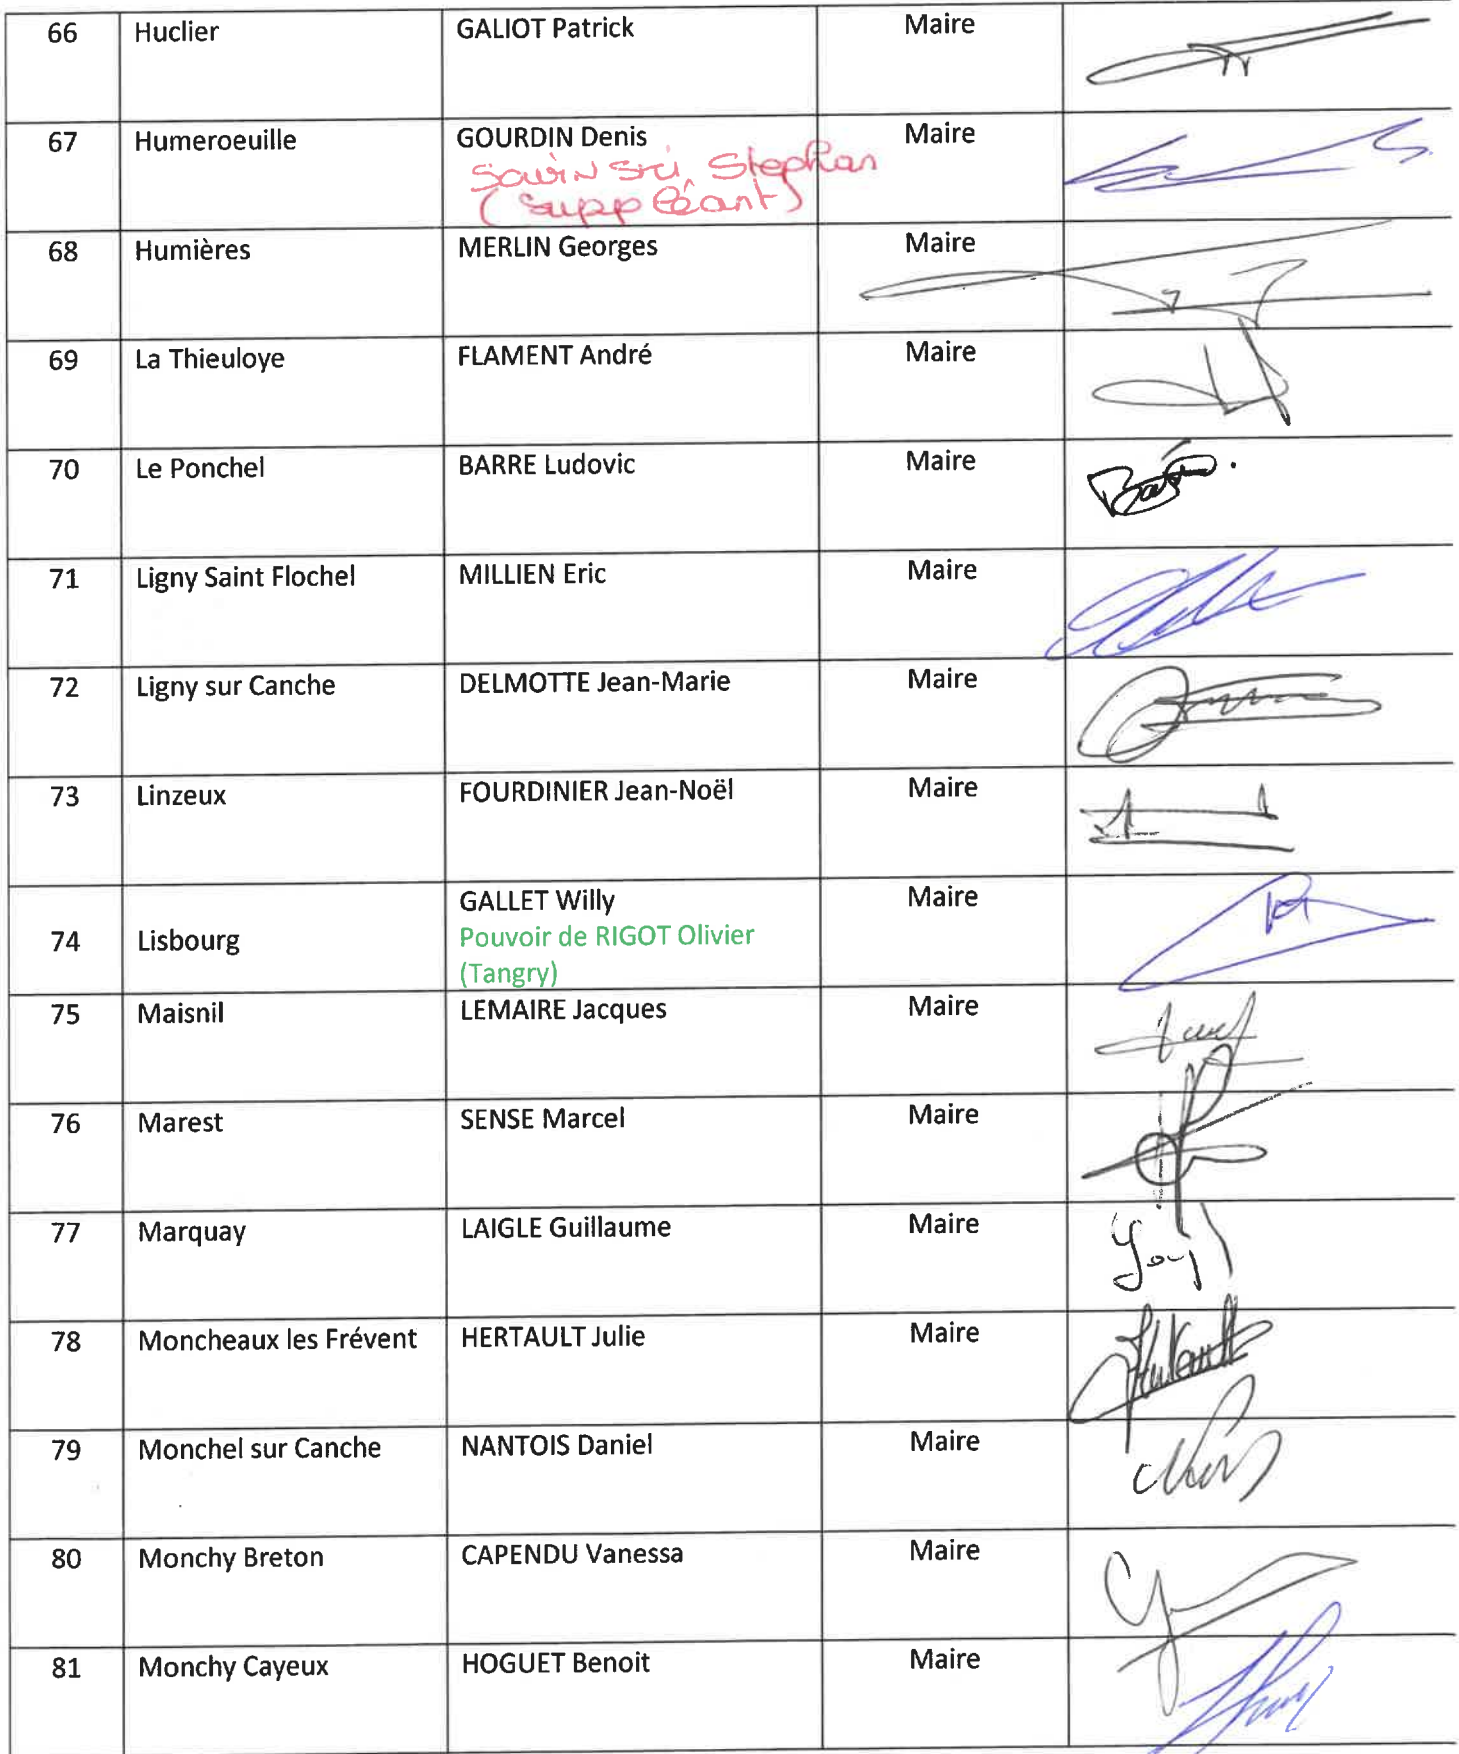 66 Huclier GALIOT Patrick Maire
67 Humeroeuille GOURDIN Denis Maire
Stephan
(suppléant)
68 Humières MERLIN Georges Maire
69 La Thieuloye FLAMENT André Maire
70 Le Ponchel BARRE Ludovic Maire
71 Ligny Saint Flochel MILLIEN Eric Maire
72 Ligny sur Canche DELMOTTE Jean-Marie Maire
73 Linzeux FOURDINIER Jean-Noël Maire
74 Lisbourg GALLET Willy Maire
Pouvoir de RIGOT Olivier
(Tangry)
75 Maisnil LEMAIRE Jacques Maire
76 Marest SENSE Marcel Maire
77 Marquay LAIGLE Guillaume Maire
78 Moncheaux les Frévent HERTAULT Julie Maire
79 Monchel sur Canche NANTOIS Daniel Maire
80 Monchy Breton CAPENDU Vanessa Maire
81 Monchy Cayeux HOGUET Benoit Maire